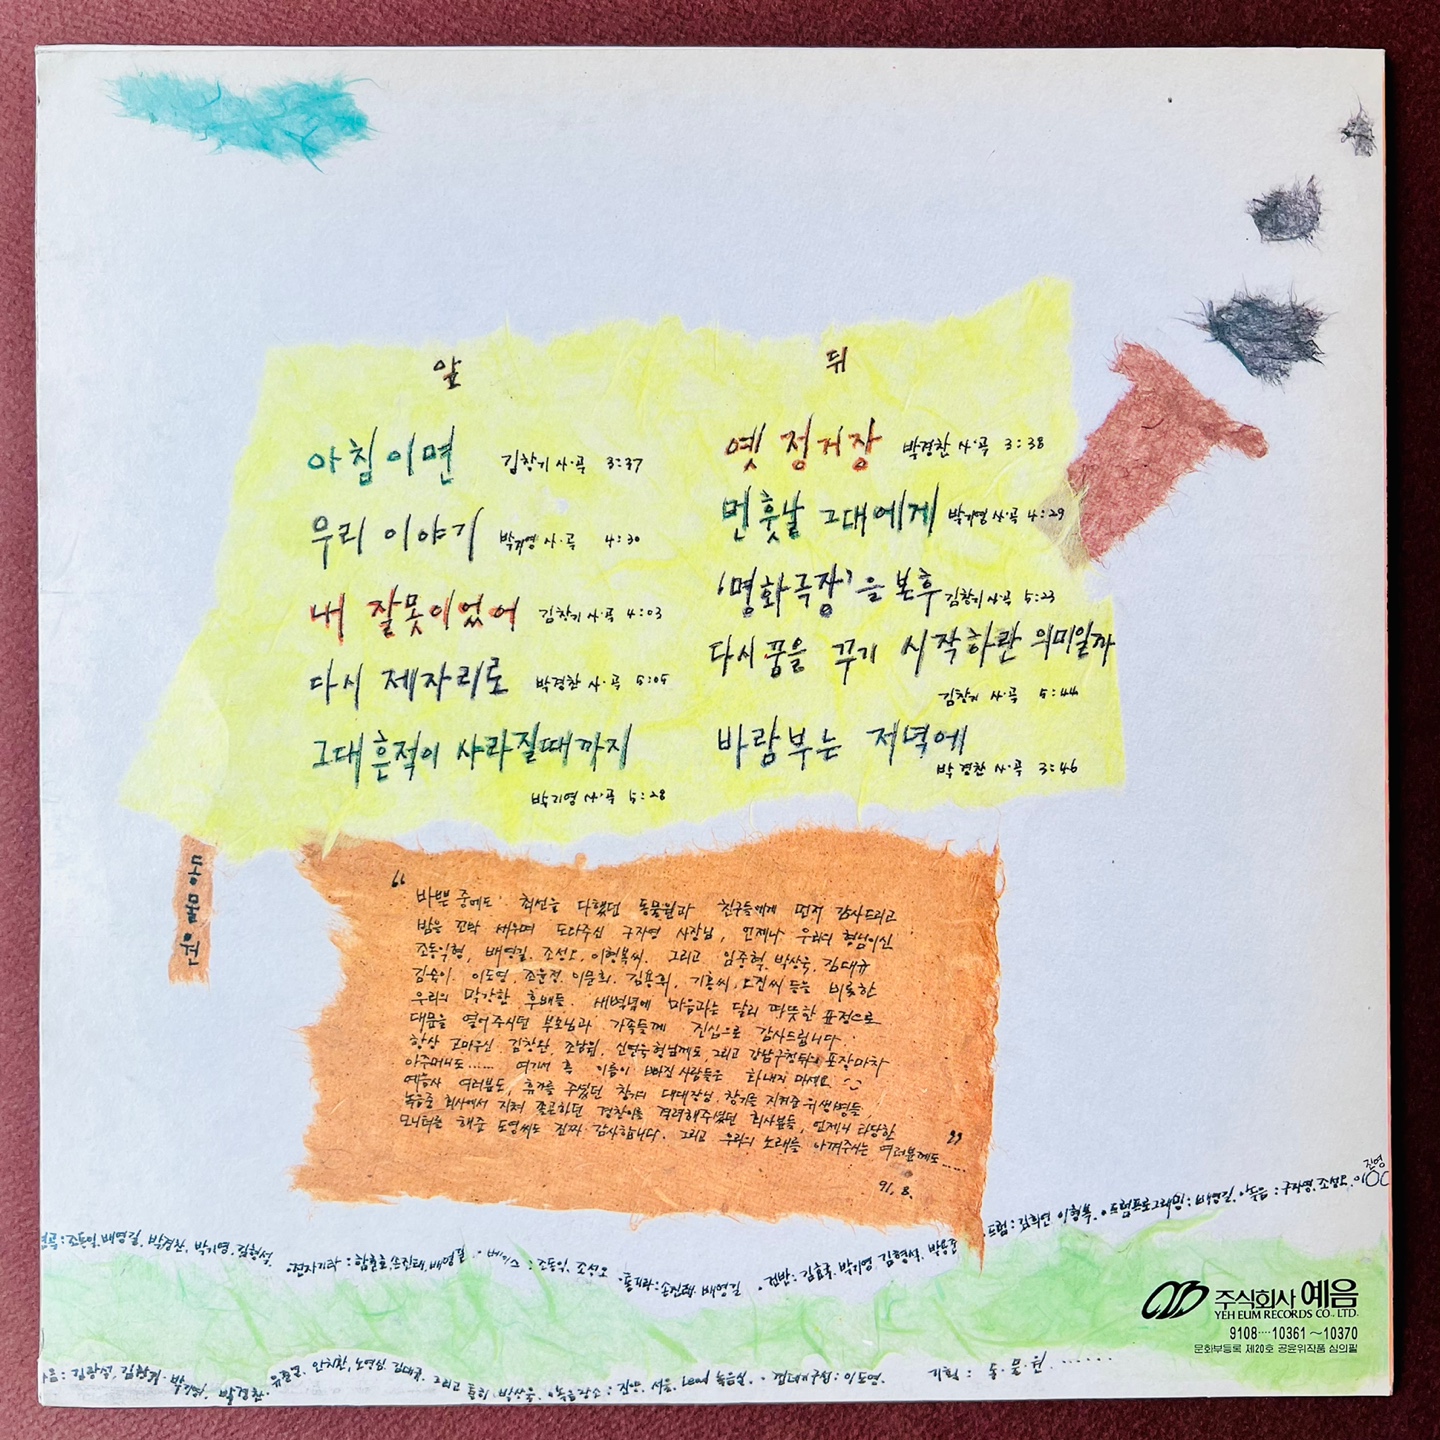 앞
아침이면 김창기 사·곡 3:37
우리 이야기 박기영 사·곡 4:30
내 잘못이었어 김창기 사·곡 4:03
다시 제자리로 박경찬 사·곡 5:05
그대 흔적이 사라질때까지
박기영 사·곡 5:28
뒤
옛 정거장 박경찬 사·곡 3:38
먼훗날 그대에게 박기영 사·곡 4:29
'명화극장'을 본후 김창기 사·곡 5:23
다시 꿈을 꾸기 시작하란 의미일까
김창기 사·곡 5:44
바람부는 저녁에
박경찬 사·곡 3:46
동물원
“바쁜 중에도 최선을 다했던 동물원과 친구들에게 먼저 감사드리고
밤을 꼬박 세우며 도와주신 구자영 사장님, 언제나 우리의 형님이신
조동익형, 배영길, 조성오, 이형복씨. 그리고 임종혁, 박상욱, 김대규
이도영, 조윤정, 이문희, 김용희, 기훈씨, 등을 비롯한
우리의 막강한 후배들. 새벽녘에 마음과는 달리 따뜻한 표정으로
대문을 열어주시던 부모님과 가족들께 진심으로 감사드립니다.
항상 고마우신 김창완, 조남원, 형님께도, 그리고 강남구청뒤의 포장마차
아주머니도...... 여기서 혹 이름이 빠진 사람들은 화내지 마세요
예음사 여러분도, 휴가를 주셨던 창기의 대대장님, 창기를 지켜준 위생병들,
녹음중 회사에서 지쳐 졸곤하던 경찬이를 격려해주셨던 회사분들, 언제나 타당한
모니터를 해준 도영씨도 진짜 감사합니다. 그리고 우리의 노래를 아껴주시는 여러분께도......”
91. 8.
: 조동익, 배영길, 박경찬, 박기영, 김형석. ·전자기타 : 함춘호, 손진태, 배영길 · 베이스 : 조동익, 조성오 ·통기타 : 손진태, 배영길 · 건반 : 김효국, 박기영, 김형석, 박용준 ·드럼 : 김희현, 이형복. ·드럼프로그래밍 : 배영길. ·녹음 : 구자영, 조성오, 이
진영
주식회사 예음
YEH EUM RECORDS CO., LTD.
9108····10361～10370
문화부등록 제20호 공윤위작품 심의필
: 김광석, 김창기, 박기영, 박경찬, 유준열, 안치환, 노영심, 김대규 그리고 박상욱. ·녹음장소 : 진양, 서울, Lead 녹음실. · 이도영. 기획 : 동·물·원.......